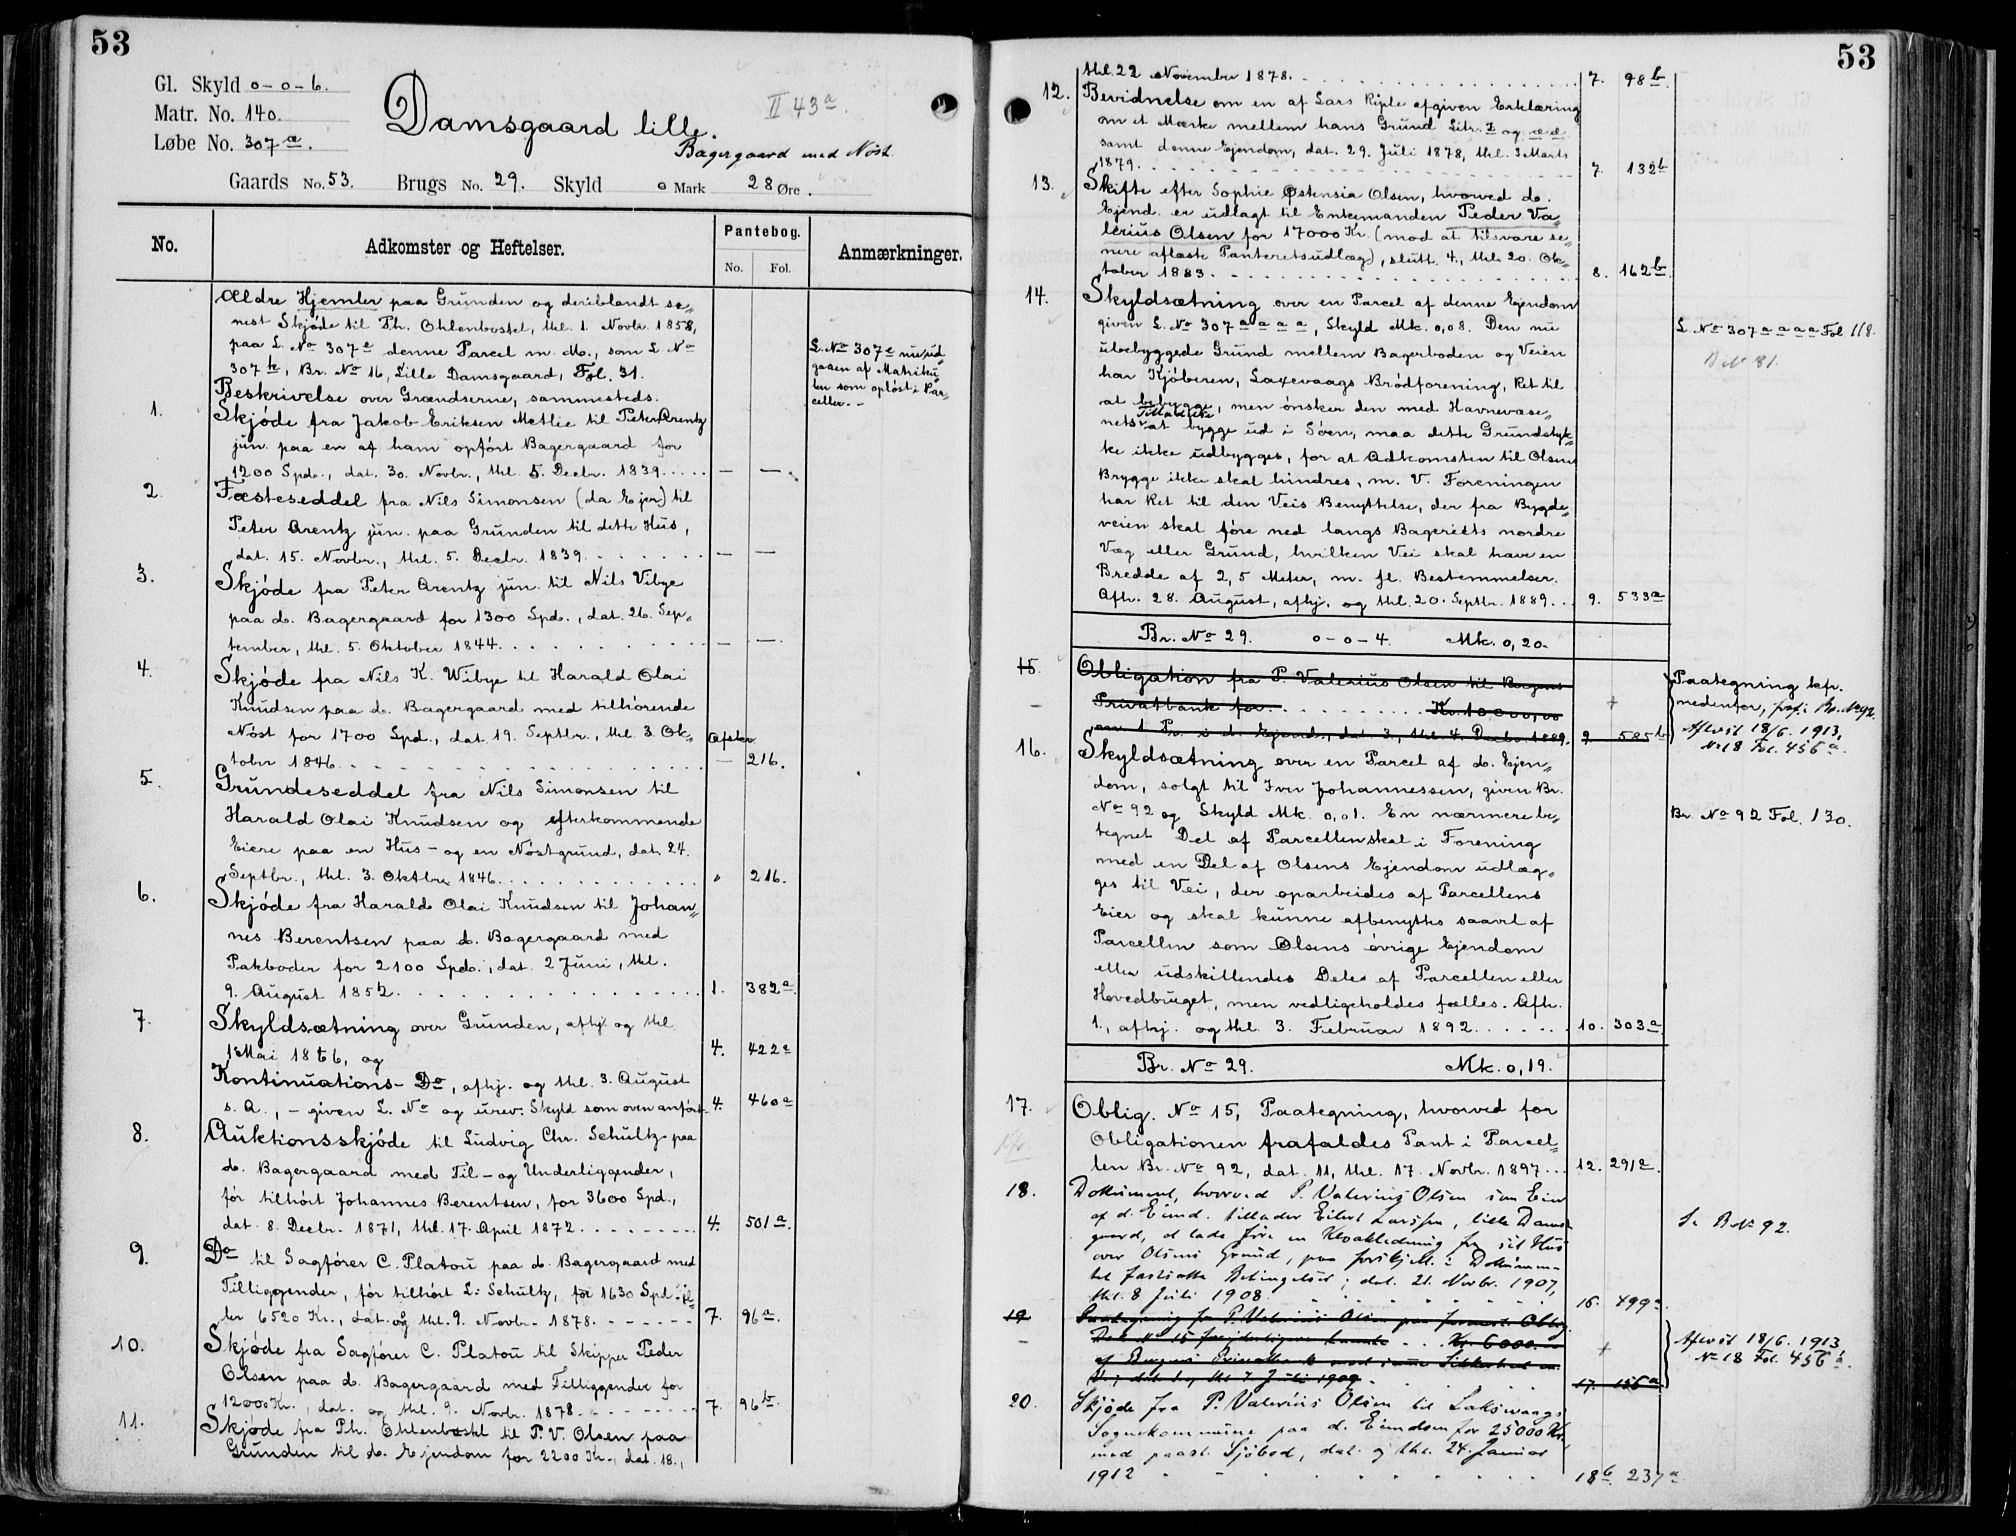 53
Gl. Skyld 0-0-6.
Matr. No. 140.
Løbe No. 307 a.
Damsgaard lille.
II 43 a.
Bagergaard med Nøst
Gaards No. 53. Brugs No. 29. Skyld 0 Mark 28 Øre.
No. Adkomster og Heftelser. Pantebog. No. Fol. Anmærkninger.
Ældre Hjemler paa Grunden og deriblandt se„
nest Skjøde til Ph. Ohlenbostel, thl. 1. Novbr. 1858,
paa L. No 307 e denne Parcel m. M., som L No
307 k, Br. No 16, Lille Damsgaard, Fol. 31.
L. No 307 e nu ud„
gaaen af Matriku„
len som opløst i Par„
celler.-
Beskrivelse over Grændserne, sammesteds.
1. Skjøde fra Jakob Eriksen Metlie til Peter Arentz
jun. paa en af ham opført Bagergaard for
1200 Spd., dat. 30. Novbr., thl. 5. Decbr. 1839..... — —.
2. Fæsteseddel fra Nils Simonsen (da Ejer) til
Peter Arentz jun. paa Grunden til dette Hus,
dat. 15. Novbr., thl. 5. Decbr. 1839....... — —
3. Skjøde fra Peter Arentz jun. til Nils Vibye
paa d. Bagergaard for 1300 Spd., dat. 26. Sep„
tember, thl. 5. Oktober 1844........... — —.
4. Skjøde fra Nils K. Wibye til Harald Olai
Knudsen paa d. Bagergaard med tilhørende
Nøst for 1700 Spd., dat. 19. Septbr., thl. 3. Ok„
tober 1846............... — 216.
5. Grundeseddel fra Nils Simonsen til
Harald Olai Knudsen og efterkommende
Eiere paa en Hus- og en Nøstgrund, dat. 24.
Septbr., thl. 3. Oktbr. 1846............. „ 216.
6. Skjøde fra Harald Olai Knudsen til Johan„
nes Berentsen paa d. Bagergaard med
Pakboder for 2100 Spd., dat. 2 Juni, thl.
9. August 1852............... 1. 382 a.
7. Skyldsætning over Grunden, afhj. og thl
1 Mai 1866, og 4. 422 a
Kontinuations- Do, afhj. og thl. 3. August
s. A., - given L. No og urev. Skyld som oven anført- 4. 460 a
8. Auktionsskjøde til Ludvig Chr. Schultz paa
d. Bagergaard med Til- og Underliggender,
før tilhørt Johannes Berentsen, for 3600 Spd.,
dat. 8. Decbr. 1871, thl. 17. April 1872........ 4. 501 a.
9. Do til Sagfører C. Platou paa d. Bagergaard med
Tilliggender, før tilhørt L. Schultz, for 1630 Spd. el„
ler 6520 Kr., dat. og thl. 9. Novbr. 1878...... 7. 96 a.
10. Skjøde fra Sagfører C. Platou til Skipper Peder
Olsen paa d. Bagergaard med Tilliggender for
12000 Kr., dat. og thl. 9. Novbr. 1878........ 7. 96 b.
11. Skjøde fra Ph. Ohlenbostel til P. V. Olsen paa
Grunden til d. Ejendom for 2200 Kr., dat. 18.,
53
thl. 22 November 1878................ 7. 98 b.
12. Bevidnelse om en af Lars Riple afgiven Erklæring
om et Mærke mellem hans Grund Litr. z og æ.æ.
samt denne Ejendom, dat. 29. Juli 1878, thl. 3 Marts
1879................ 7. 132 b
13. Skifte efter Sophie Østensia Olsen, hvorved d.
Ejend. er udlagt til Enkemanden Peder Va„
lerius Olsen for 17000 Kr. (mod at tilsvare se„
nere aflæste Panteretsudlæg), slutt. 4., thl. 20. Ok„
tober 1883................ 8. 162 b.
14. Skyldsætning over en Parcel af denne Ejendom
given L. No 307 a a a a, Skyld Mk. 0,08. Den nu
L. No 307 a a a a Fol. 118.
ubebyggede Grund mellem Bagerboden og Veien
B No 81.
har Kjøberen, Laxevaags Brødforening, Ret til
at bebygge, men ønsker den med Havnevæse„
nets Tilladelse at bygge ud i Søen, maa dette Grundstyk„
ke ikke udbygges, for at Adkomsten til Olsens
Brygge ikke skal hindres, m. V. Foreningen
har Ret til den Veis Benyttelse, der fra Bygde„
veien skal føre ned langs Bageriets nordre
Væg eller Grund, hvilken Vei skal have en
Bredde af 2,5 Meter, m. fl. Bestemmelser.
Afh. 28. August, afhj. og thl. 20. Septbr. 1889... 9. 533 a
Br. No 29. 0-0-4. Mk. 0,20.
15. Obligation fra P. Valerius Olsen til Bergens
Privatbank for........... Kr. 10,000,00
mod 1. Pr. i d. Ejend., dat. 3., thl. 4. Decbr. 1889. 9. 585 b
Paategning kfr.
nedenfor, jvf. Br. No 92.
Aflæst 18/6. 1913,
No 18 Fol. 456 a.
16. Skyldsætning over en Parcel af d. Ejen„
dom, solgt til Iver Johannessen, given Br.
No 92 og Skyld Mk. 0,01. En nærmere be„
Br. No 92 Fol. 130.
tegnet Del af Parcellen skal i Forening
med en Del af Olsens Ejendom udlæg„
ges til Vei, der oparbeides af Parcellens
Eier og skal kunne afbenyttes saavel af
Parcellen som Olsens øvrige Ejendom
eller udskillendes Dele af Parcellen eller
Hovedbruget, men vedligeholdes fælles. Afh.
1., afhj. og thl. 3. Februar 1892....... 10. 303 a
Br. No 29. Mk. 0,19.
17. Oblig. No 15, Paategning, hvorved for
Obligationen frafaldes Pant i Parcel„
len Br. No 92, dat. 11, thl. 17. Novbr. 1897... 12. 291 a.
18. Dokument, hvorved P. Valerius Olsen som Eier
af d. Eiend. tillader Eilert Larssen, lille Dams„
gaard, at lade føre en Kloakledning fra sit Hus
Se B No 92.
over Olsens Grund, paa forskjell. i Dokumen-
tet fastsatte Betingelser; dat. 21. Novbr. 1907,
thl. 8 Juli 1908. 16. 499 a.
19. Paategning fra P. Valerius Olsen paa foranst. Oblig.
Dok. No 15 Kr. 6000.
af Bergens Privatbank med samme Sikkerhed
thl. 7 Juli 1909. 17. 156 a
Aflæst 18/6. 1913,
No 18 Fol. 456 a.
20. Skjøde fra P. Valerius Olsen til Lakevaags
Sognekommune paa d. Eiendom for 25000 Kr.
med paast. Sjøbod, dat. og thl. 24. Januar
1912 18 b. 237 a